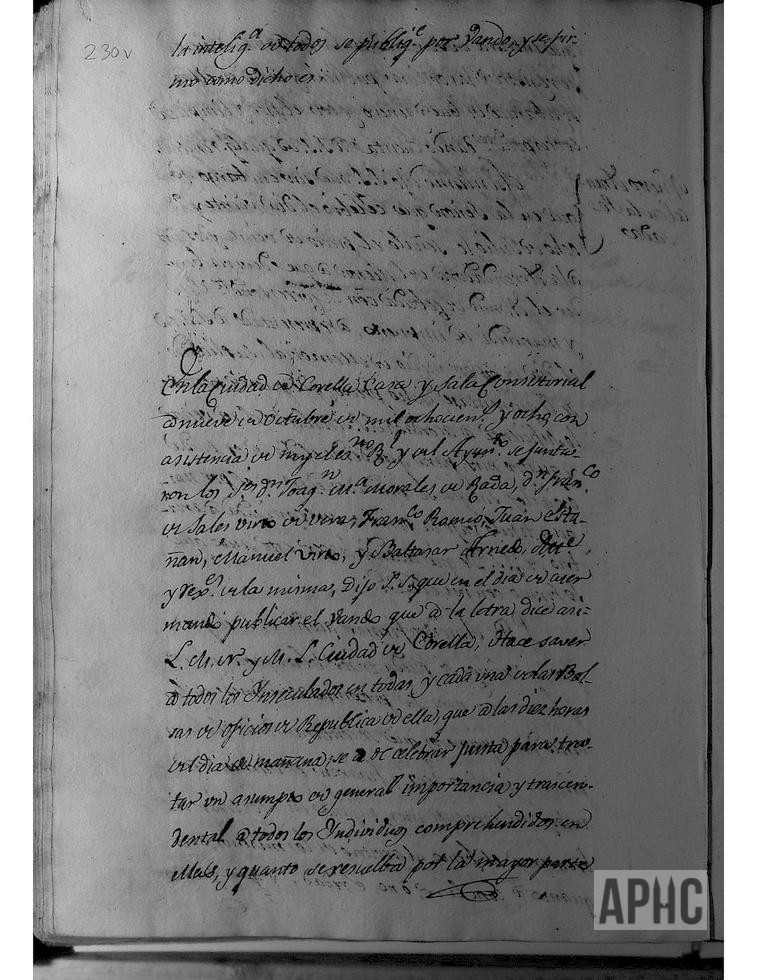 230v
la intelig.a de todos se publiq.e por Vando, y se fir-
mó como dicho es
En la Ciudad de Corella Casa y Sala Consistorial
a nueve de Octubre de mil ochocien.s y ocho con
asistencia de my el es.no R.l y del Ayun.to se junta-
ron los S.res d.n Joaq.n M.a Morales de Rada, d.n Fran.co
de Sales Virto de Vera, Fran.co Romeo, Juan Esta-
ñan, Manuel Virto, y Baltasar Arnedo, Alc.e
y Rex.s de la misma, Dijo S.S. que en el dia de ayer
mandó publicar el Vando que a la letra dice asi=
L. M. N. y M. L. Ciudad de Corella, Hace saver
à todos los Inseculados en todas y cada una de las Bol-
sas de oficios de Republica de ella, que a las diez horas
del dia de mañana, se a de celebrar Junta para tra-
tar un asumpto de general importancia y trascen-
dental a todos los Individuos comprehendidos en
ellas, y quanto se resuelba por la mayor parte
APHC